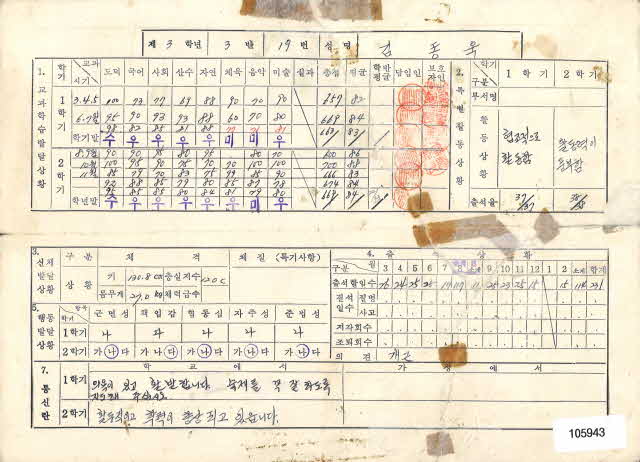 제 3 학년 3 반 19번 성명 김동욱
1. 교과학습발달상황
학기 교과 시기 도덕 국어 사회 산수 자연 체육 음악 미술 실과 총점 평균 학반평균 담임인 보호자인
1학기 3.4.5 100 73 77 69 88 90 70 90 657 82
6.7월 95 90 93 93 88 60 70 80 669 84
98 82 85 81 88 77 71 81 663 83
학기말 수 우 우 우 우 미 미 우
2학기 8.9월 90 90 90 80 95 80 70 600 86
10월 100 95 90 75 70 70 100 700 88
11월 85 79 70 83 75 79 85 90 666 83
92 88 85 79 80 85 87 78 674 84
95 85 85 80 84 81 79 80 669 84
학년말 수 우 우 우 우 우 미 우
2. 특별활동상황
학기 구분 1 학 기 2 학 기
부서명
활동상황 협조적으로 활동함 활동력이 풍부함
출석율 37/37 38/38
3. 신체발달상황
구 분 체 격 체 질 (특기사항)
상황 키 130.8 cm 충실지수 120C
몸무게 27.0 kg 체력급수
4. 출 석 상 황
구분 월 3 4 5 6 7 8 9 10 11 12 1 2 소계 합계
출석할일수 26 24 25 25 19 17 11 25 23 25 15 15 114 231
결석일수 질병
사고
지각회수
조퇴회수
의 견 개근
5. 행동발달상황
학기 항목 근면성 책임감 협동심 자주성 준법성
1학기 나 다 나 나 나
2학기 가 나 다 가 나 다 가 나 다 가 나 다 가 나 다
7. 통신란
학 교 에 서 가 정 에 서
1학기 의욕이 있고 활발합니다 숙제를 꼭 잘 하도록
지도해 주십시오.
2학기 활동적이고 학력이 향상 되고 있습니다.
105943